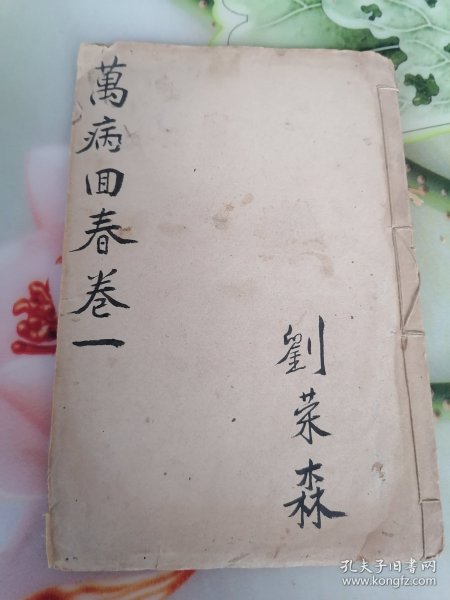 萬病回春卷一
劉荣森
孔夫子旧书网
www.kongfz.com